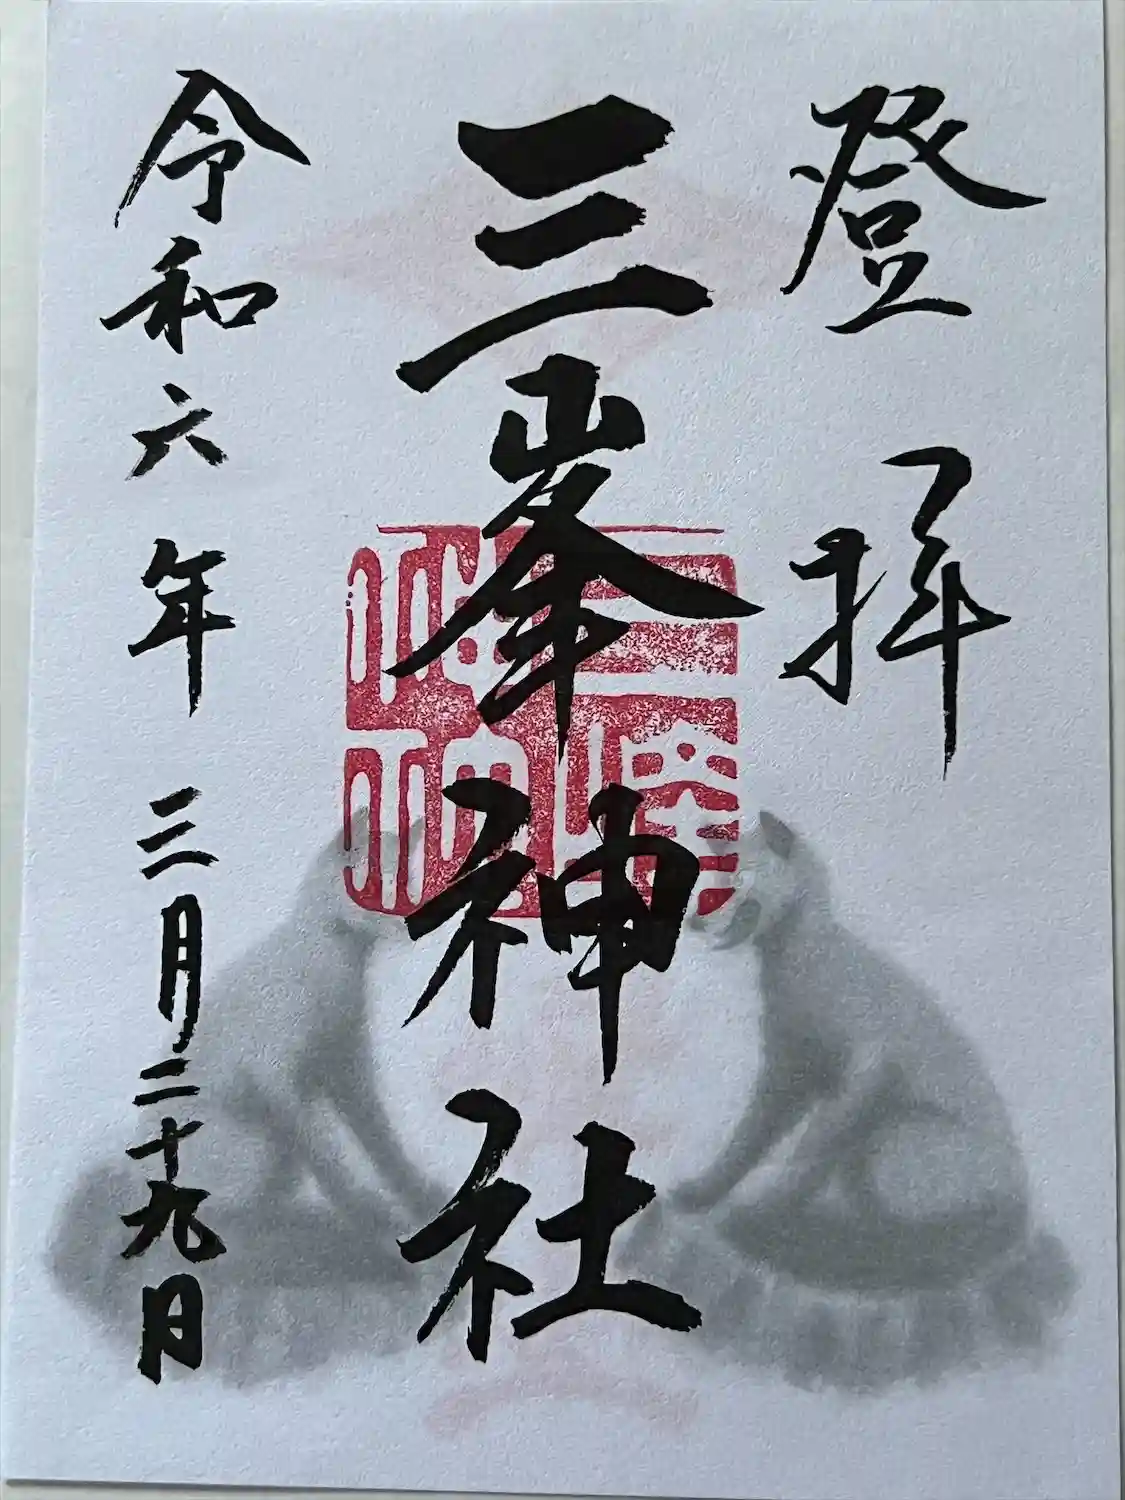 登拝
三峯神社
令和六年三月二十九日